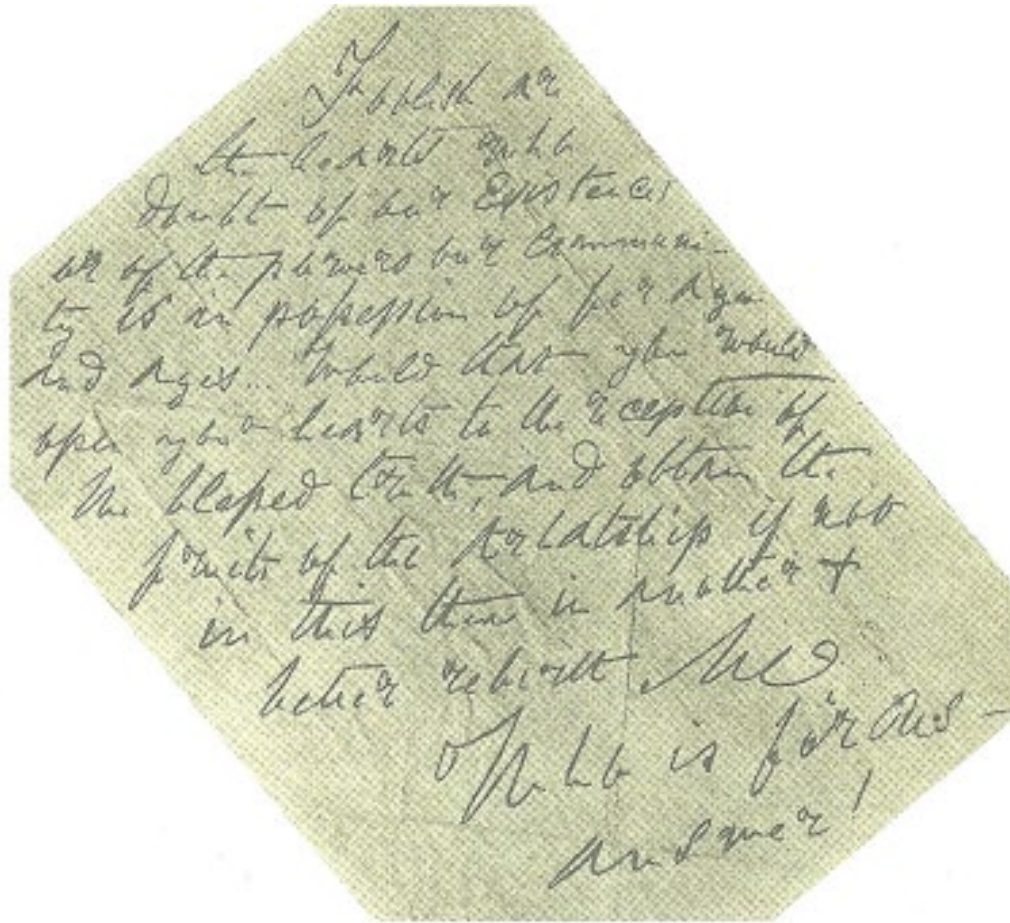 Foolish are
the hearts who
doubt of our existence!
or of the powers our communi-
ty is in possession of for ages
and ages... Would that you would
open your hearts to the reception of
the blessed truth, and obtain the
fruits of the Arhatship if not
in this then in another +
better rebirth
Who is for us –
answer!